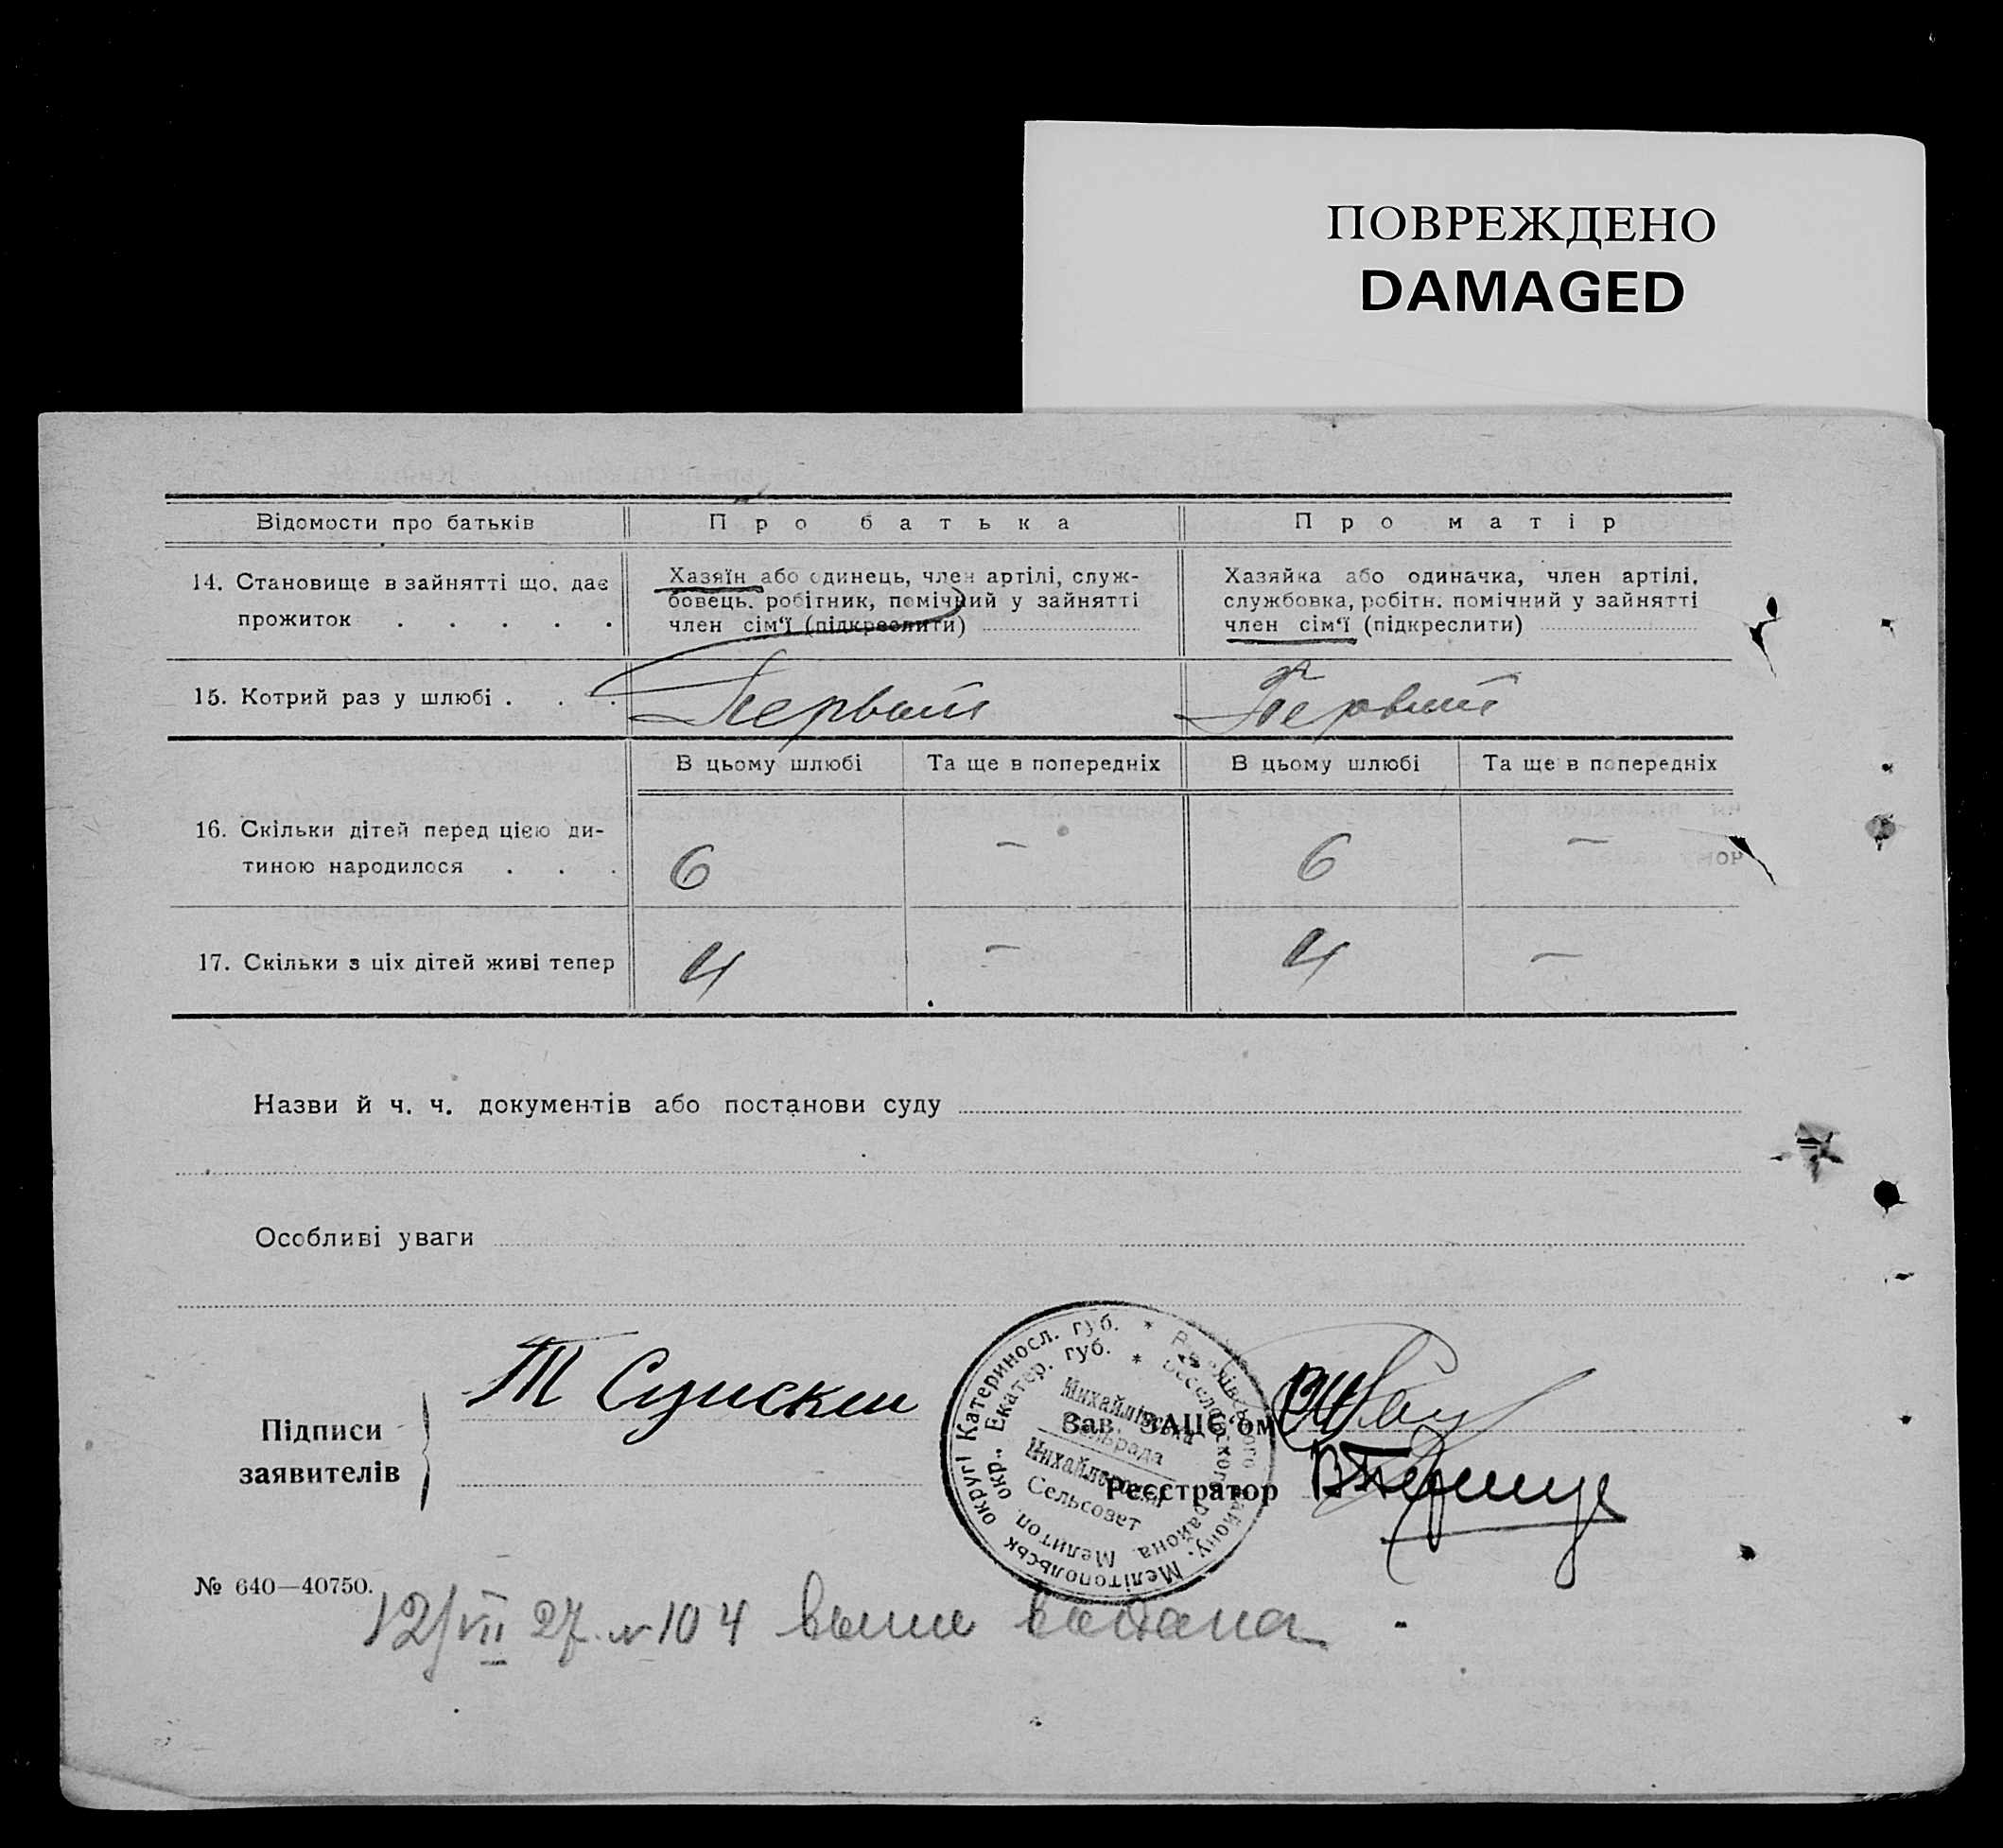 ПОВРЕЖДЕНО
DAMAGED
Відомости про батьків
Про батька
Про матір
14. Становище в зайнятті що, дає
прожиток . . . . .
Хазяїн або одинець, член артілі, служ-
бовець, робітник, помічний у зайнятті
член сім'ї (підкреслити)
Хазяйка або одиначка, член артілі,
службовка, робітн. помічний у зайнятті
член сім'ї (підкреслити)
15. Котрий раз у шлюбі . . .
Первый
Первый
В цьому шлюбі
Та ще в попередніх
В цьому шлюбі
Та ще в попередніх
16. Скільки дітей перед цією ди-
тиною народилося . . .
6
—
6
—
17. Скільки з ціх дітей живі тепер
4
—
4
—
Назви й ч. ч. документів або постанови суду
Особливі уваги
Підписи
заявителів
Зав. ЗАЦС'ом
Реєстратор
Мелітопольськ округі Катериносл. губ. *
району.
Мелитоп. окр. Екатер. губ. *
района.
Михайлівська
Сельрада
Сельсовет
№ 640—40750.
12/VII 27. № 104